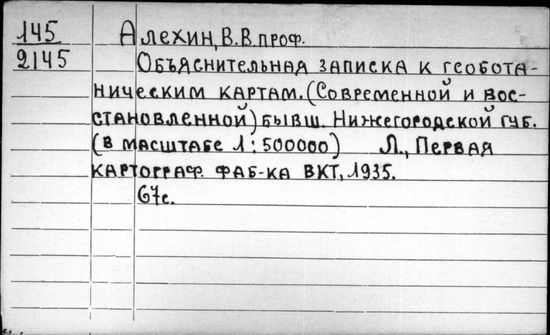 145 Алехин, В.В. проф.
2145 Объяснительная записка к геобота-
ническим картам. (Современной и вос-
становленной) бывш. Нижегородской губ.
(в масштабе 1:500000) Л., Первая
картограф. фаб-ка ВКТ, 1935.
67с.